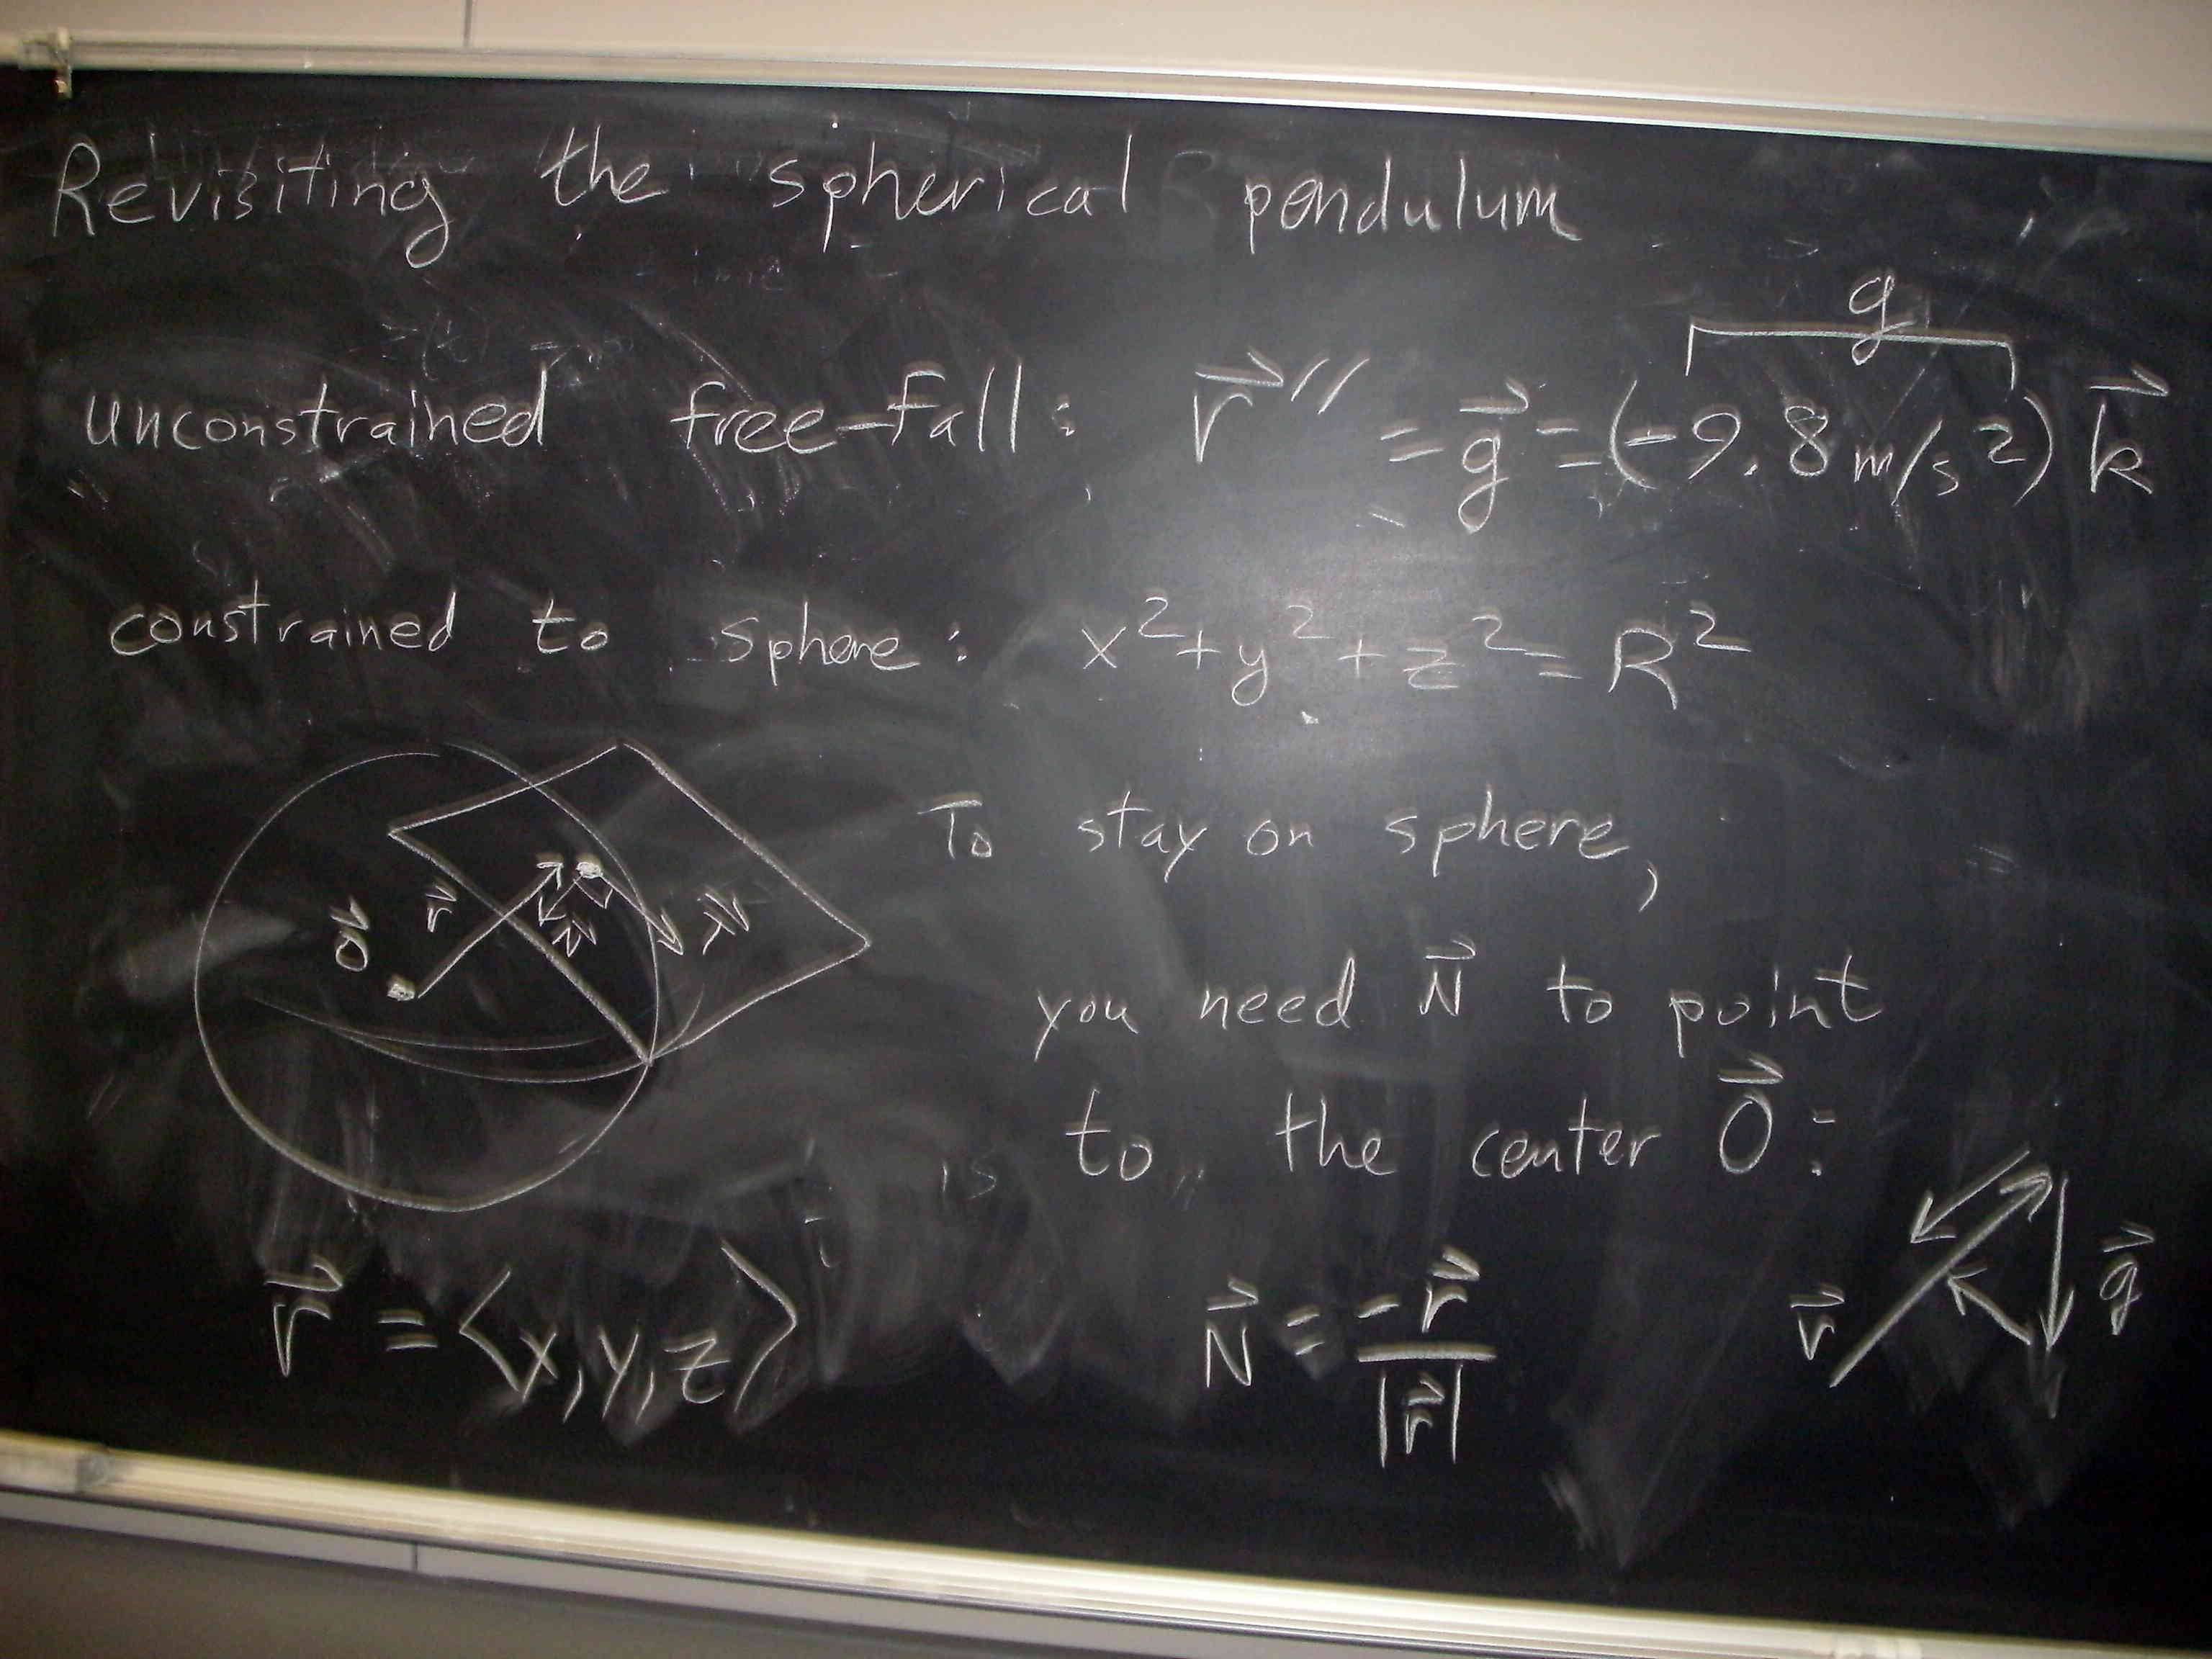 Revisiting the spherical pendulum
g
unconstrained free-fall: r⃗″ = g⃗ = (-9.8 m/s²) k⃗
constrained to sphere: x² + y² + z² = R²
To stay on sphere,
you need N⃗ to point
to the center O⃗:
O⃗ r⃗ N⃗
r⃗ = ⟨x, y, z⟩
N⃗ = -r⃗ / |r⃗|
r⃗ g⃗